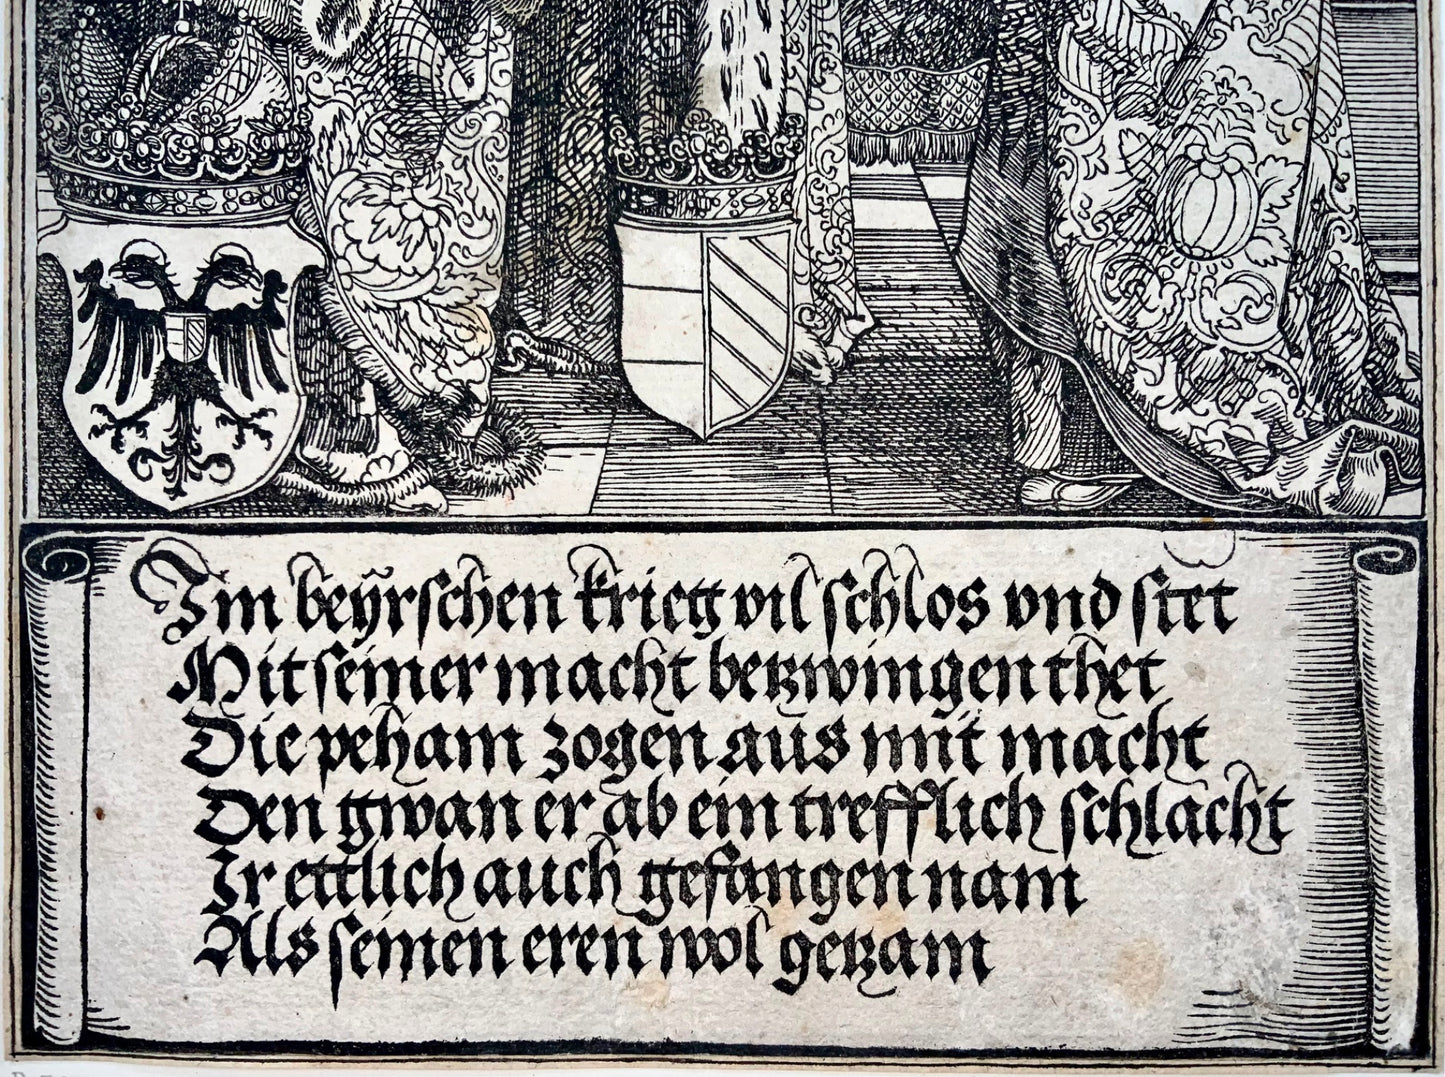 Im beyrschen krieg vil schlos vnd stet
Mit seiner macht betzwingen thet
Die peham zogen aus mit macht
Den gwan er ab ein trefflich schlacht
Ir ettlich auch gefangen nam
Als seinen eren wol getzam